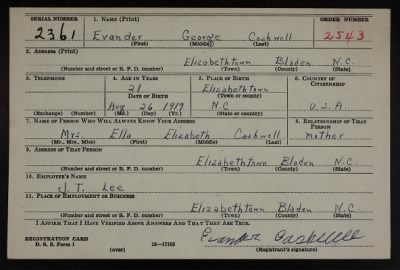 SERIAL NUMBER 1. NAME (Print) ORDER NUMBER
2361 Evander George Cashwell 2543
(First) (Middle) (Last)
2. ADDRESS (Print)
Elizabethtown Bladen N.C.
(Number and street or R. F. D. number) (Town) (County) (State)
3. TELEPHONE 4. AGE IN YEARS 5. PLACE OF BIRTH 6. COUNTRY OF CITIZENSHIP
21 Elizabethtown
DATE OF BIRTH (Town or county)
Aug 26 1919 N.C U.S.A
(Exchange) (Number) (Mo.) (Day) (Yr.) (State or country)
7. NAME OF PERSON WHO WILL ALWAYS KNOW YOUR ADDRESS 8. RELATIONSHIP OF THAT PERSON
Mrs. Ella Elizabeth Cashwell Mother
(Mr., Mrs., Miss) (First) (Middle) (Last)
9. ADDRESS OF THAT PERSON
Elizabethtown Bladen N.C.
(Number and street or R. F. D. number) (Town) (County) (State)
10. EMPLOYER'S NAME
J. T. Lee
11. PLACE OF EMPLOYMENT OR BUSINESS
Elizabethtown Bladen N.C.
(Number and street or R. F. D. number) (Town) (County) (State)
I AFFIRM THAT I HAVE VERIFIED ABOVE ANSWERS AND THAT THEY ARE TRUE.
REGISTRATION CARD Evander Cashwell
D. S. S. Form 1 (over) 16—17105 (Registrant's signature)